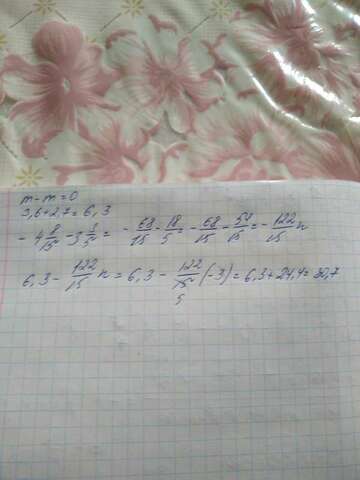 m-m=0
3,6+2,7=6,3
-4 8/15 -3 3/5 = -68/15 - 18/5 = -68/15 - 54/15 = -122/15 n
6,3 - 122/15 n = 6,3 - 122/15 (-3) = 6,3+24,4=30,7
5